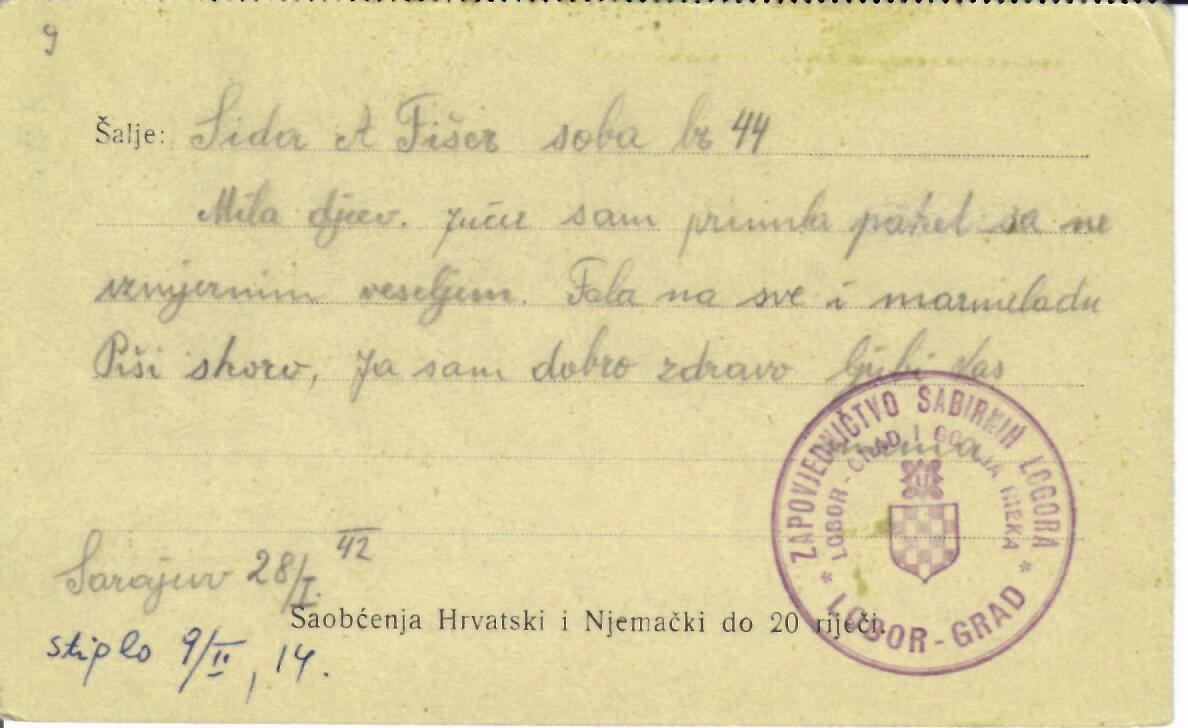 9
Šalje: Sida A Fišer soba br 44
Mila djeco. Jučer sam primila paket sa ne
izmjernim veseljem. Fala na sve i marmeladu
Piši skoro, Ja sam dobro zdravo ljubi Vas
mama
ZAPOVJEDNIČTVO SABIRNIH LOGORA
LOBOR-GRAD I GORNJA RIEKA
U
* LOBOR-GRAD *
Sarajevo 28/I. 42
Saobćenja Hrvatski i Njemački do 20 riječi.
stiglo 9/II, 14.